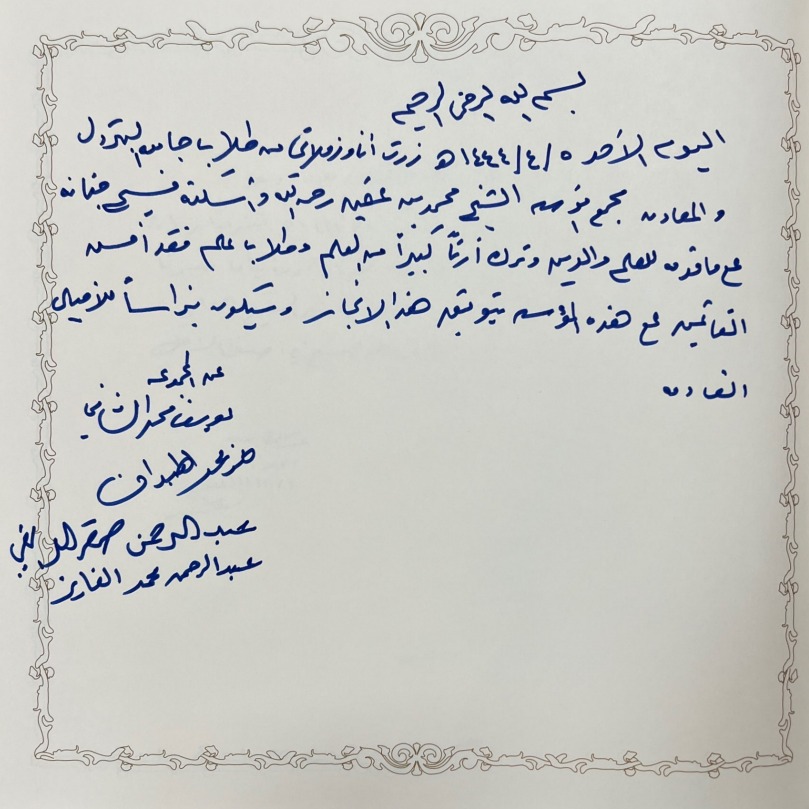 بسم الله الرحمن الرحيم
اليوم الأحد ٥/٤/١٤٤٤هـ زرت أنا وزملائي من طلاب جامعة البترول
والمعادن مجمع مؤسسة الشيخ محمد بن عثيمين رحمه الله وأسكنه فسيح جناته
على ما قدمه للعلم والدين وترك أرثاً كبيراً من العلم وطلاب علم فقد أحسن
القائمين على هذه المؤسسة بتوثيق هذا الإنجاز وسيكون نبراساً للأجيال
القادمة
عن المجموعة
يوسف محمد
محمد
عبدالرحمن صقر
عبدالرحمن محمد الفايز